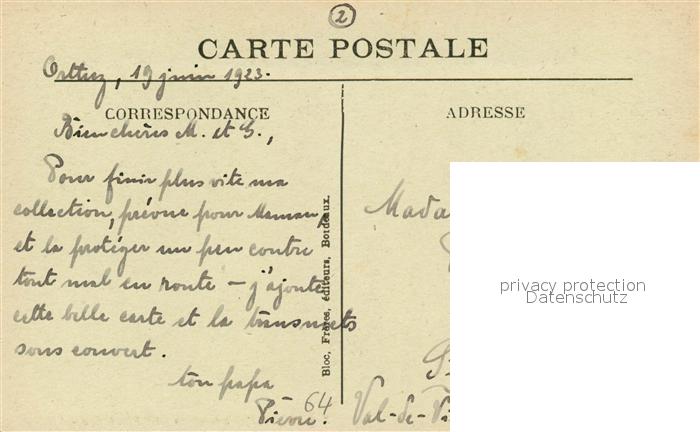 2
CARTE POSTALE
Orthez, 19 juin 1923.
CORRESPONDANCE
ADRESSE
Bien chères M. et G.,
Pour finir plus vite ma
collection, prévue pour Maman,
et la protéger un peu contre
tout mal en route – j'ajoute
cette belle carte et la transmets
sous couvert.
ton papa
Pierre.
64
Bloc, Frères, éditeurs, Bordeaux.
Mada
Val-de-Vi
privacy protection
Datenschutz